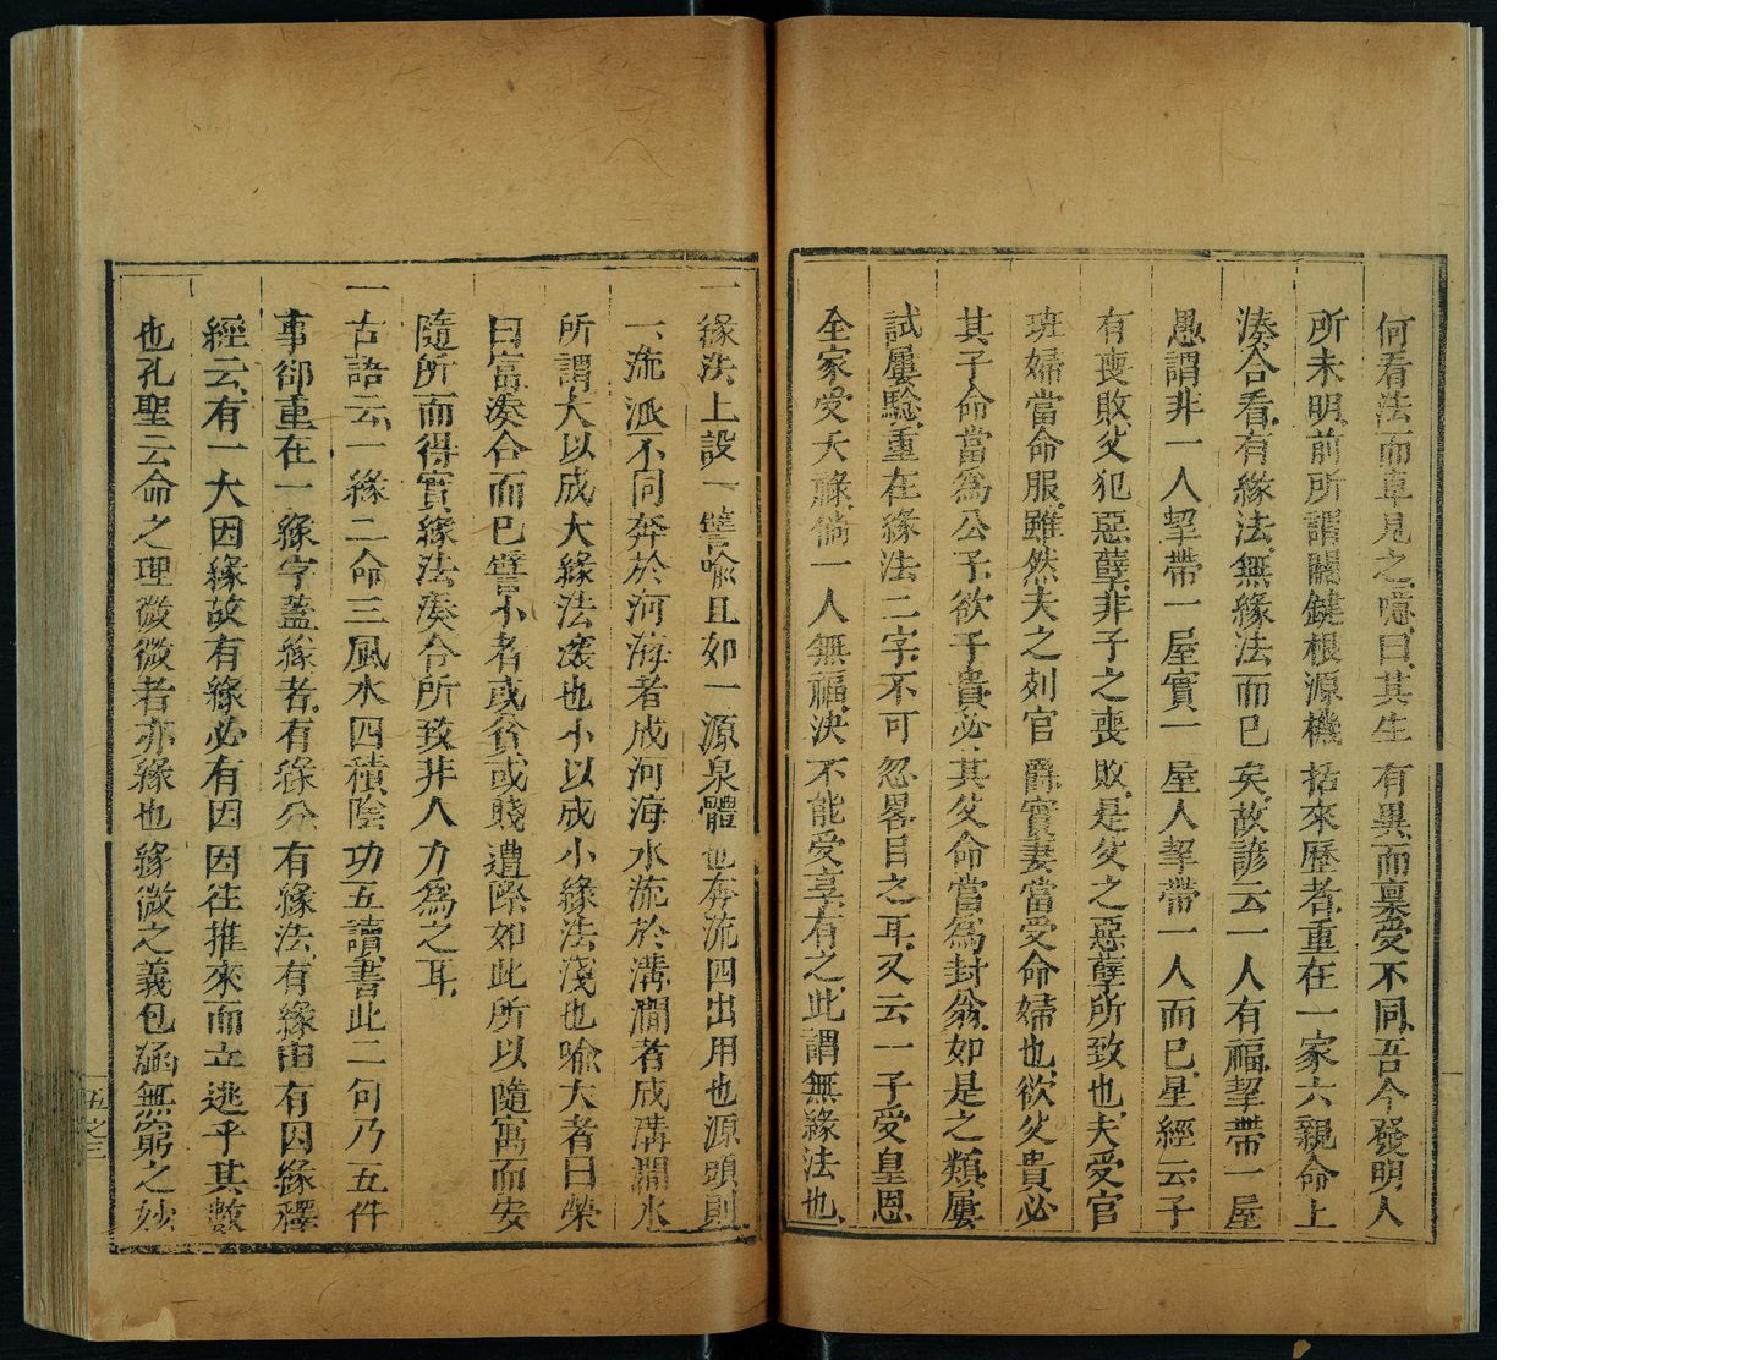 何看法而卓見之噫曰其生有異而稟受不同吾今發明人
所未明前所謂關鍵根源機括來歷者重在一家六親命上
湊合看有緣法無緣法而已矣故諺云一人有福挈帶一屋
愚謂非一人挈帶一屋實一屋人挈帶一人而已星經云子
有喪敗父犯惡孽非子之喪敗是父之惡孽所致也夫受官
班婦當命服雖然夫之列官爵實妻當受命婦也欲父貴必
其子命當為公子欲子貴必其父命當為封翁如是之類屢
試屢驗重在緣法二字不可忽畧目之耳又云一子受皇恩
全家受天祿倘一人無福決不能受享有之此謂無緣法也
一緣法上設一譬喻且如一源泉體也奔流四出用也源頭則
一流派不同奔於河海者成河海水流於溝澗者成溝澗水
所謂大以成大緣法深也小以成小緣法淺也喻大者曰榮
曰富湊合而已譬小者或貧或賤遭際如此所以隨寓而安
隨所而得實緣法湊合所致非人力為之耳
一古語云一緣二命三風水四積陰功五讀書此二句乃五件
事卻重在一緣字蓋緣者有緣分有緣法有緣由有因緣釋
經云有一大因緣故有緣必有因因往推來而立逃乎其數
也孔聖云命之理微微者亦緣也緣微之義包涵無窮之妙
五之三